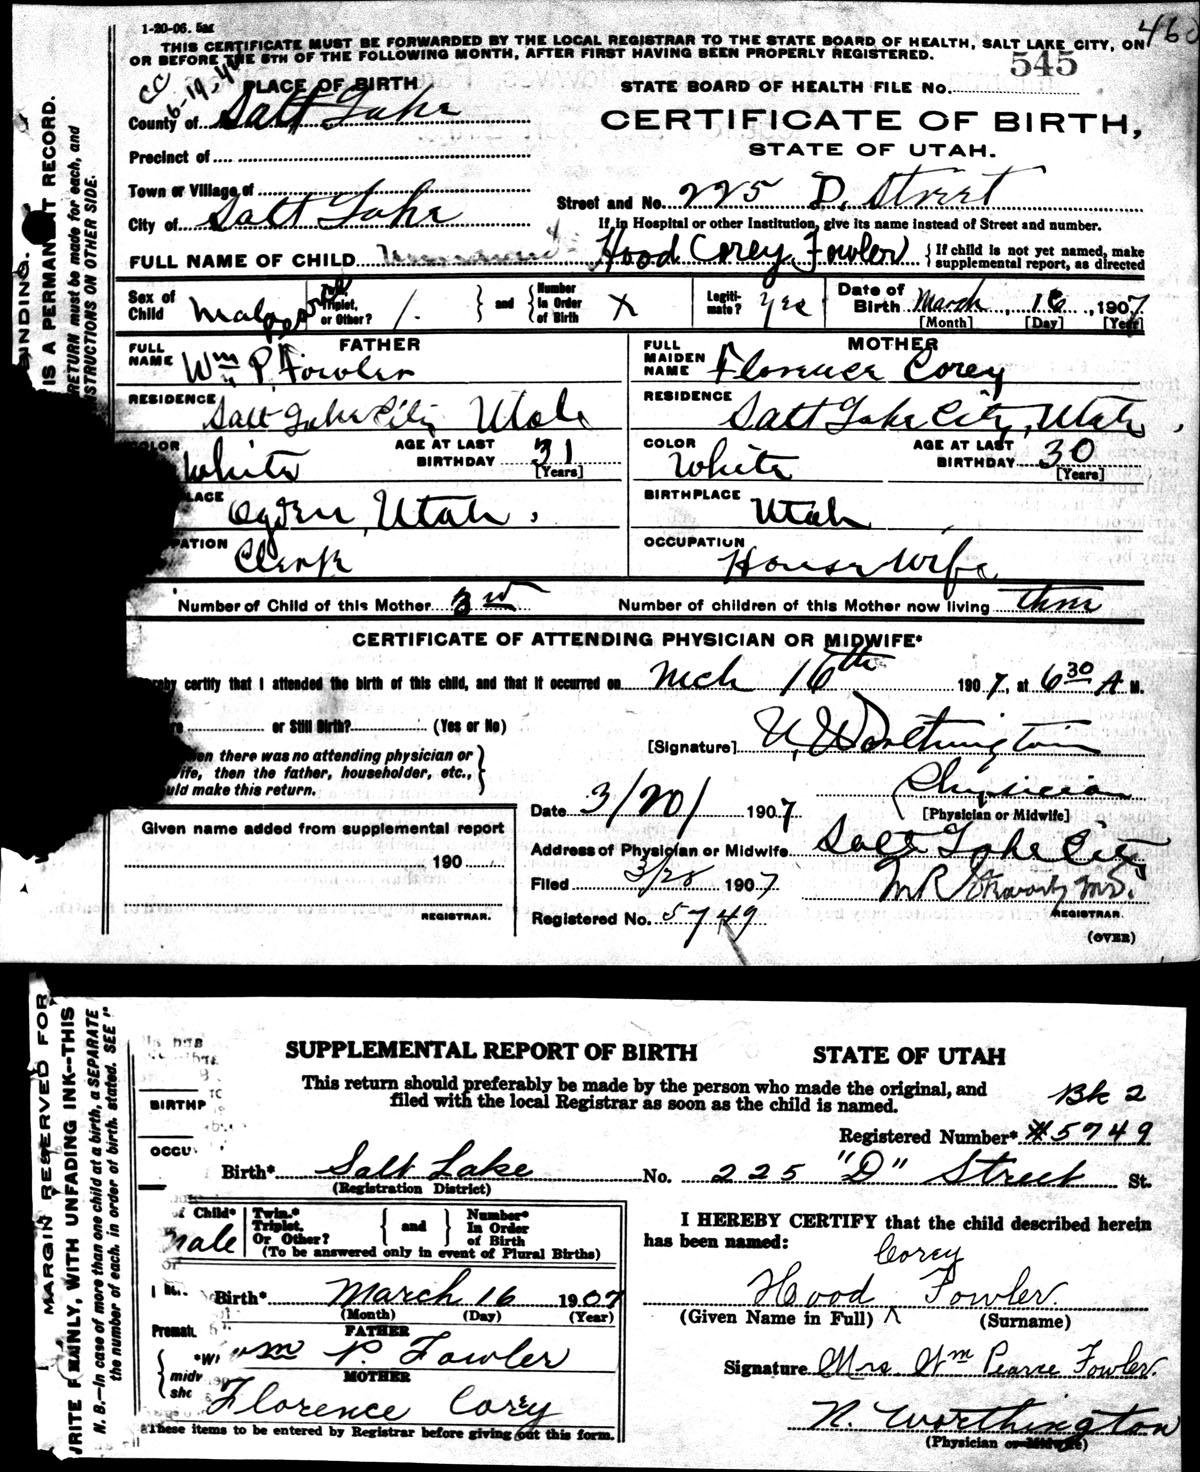 1-20-06. 5M
460
THIS CERTIFICATE MUST BE FORWARDED BY THE LOCAL REGISTRAR TO THE STATE BOARD OF HEALTH, SALT LAKE CITY, ON
OR BEFORE THE 5TH OF THE FOLLOWING MONTH, AFTER FIRST HAVING BEEN PROPERLY REGISTERED.
545
CC 6-19-42
PLACE OF BIRTH
STATE BOARD OF HEALTH FILE No.
County of Salt Lake
CERTIFICATE OF BIRTH,
Precinct of
STATE OF UTAH.
Town or Village of
Street and No. 225 D. Street
City of Salt Lake
If in Hospital or other Institution, give its name instead of Street and number.
FULL NAME OF CHILD Hood Corey Fowler { If child is not yet named, make supplemental report, as directed
Sex of Child Male Twin, Triplet, or Other? 1. } and { Number in Order of Birth X Legitimate? Yes Date of Birth March 16, 1907
[Month] [Day] [Year]
FATHER MOTHER
FULL NAME Wm P. Fowler FULL MAIDEN NAME Florence Corey
RESIDENCE Salt Lake City Utah RESIDENCE Salt Lake City, Utah
COLOR White AGE AT LAST BIRTHDAY 31 [Years] COLOR White AGE AT LAST BIRTHDAY 30 [Years]
PLACE Ogden, Utah. BIRTHPLACE Utah
PATION Clerk OCCUPATION House wife
Number of Child of this Mother 3rd Number of children of this Mother now living three
CERTIFICATE OF ATTENDING PHYSICIAN OR MIDWIFE*
reby certify that I attended the birth of this child, and that it occurred on Mch 16th 1907, at 6 30 A M.
or Still Birth? (Yes or No)
[Signature] Worthington
en there was no attending physician or
ife, then the father, householder, etc.,
uld make this return.
Physician
[Physician or Midwife]
Date 3/20/ 1907
Given name added from supplemental report
Address of Physician or Midwife Salt Lake City
190
Filed 3/28 1907
REGISTRAR.
REGISTRAR.
Registered No. 5749
(OVER)
BINDING.
IS A PERMANENT RECORD.
RETURN must be made for each, and
STRUCTIONS ON OTHER SIDE.
MARGIN RESERVED FOR
WRITE PLAINLY, WITH UNFADING INK--THIS
N. B.--In case of more than one child at a birth, a SEPARATE
the number of each, in order of birth, stated. SEE "
SUPPLEMENTAL REPORT OF BIRTH STATE OF UTAH
This return should preferably be made by the person who made the original, and
filed with the local Registrar as soon as the child is named.
Bk 2
BIRTHP
Registered Number* #5749
OCCU
Birth* Salt Lake No. 225 "D" Street St.
(Registration District)
f Child* Male Twin,* Triplet, Or Other? { and } Number* In Order of Birth
(To be answered only in event of Plural Births)
I HEREBY CERTIFY that the child described herein
has been named:
Corey
Birth* March 16 1907
(Month) (Day) (Year)
Hood Fowler.
(Given Name in Full) ^ (Surname)
FATHER
Wm P. Fowler
MOTHER
Florence Corey
Signature Mrs Wm Pearce Fowler.
Worthington
(Physician or Midwife)
*These items to be entered by Registrar before giving out this form.
Premat
midv
sho